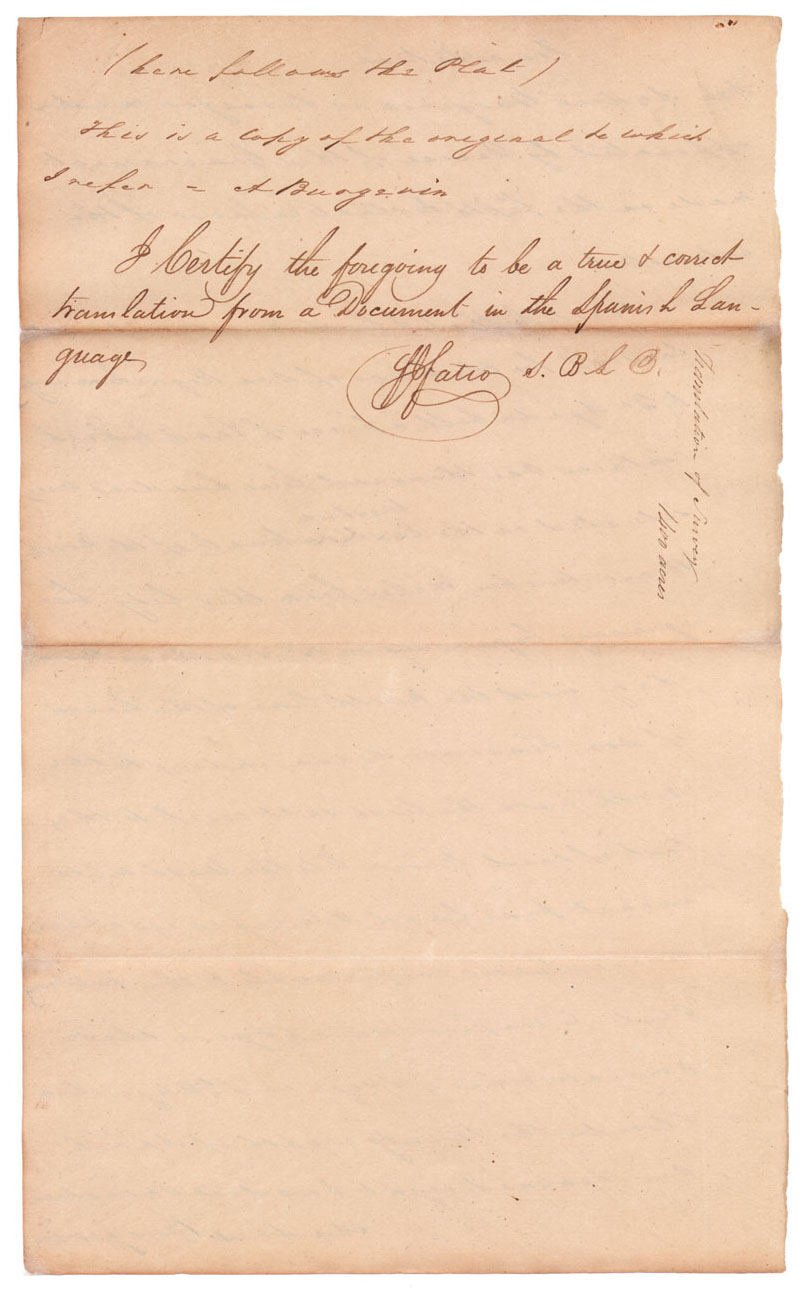 (here follows the Plat)
This is a copy of the original to which
I refer = A Burgevin
I Certify the foregoing to be a true & correct
translation from a Document in the Spanish Lan-
guage
Fatio S. B. L. C.
Translation of Survey
1400 acres